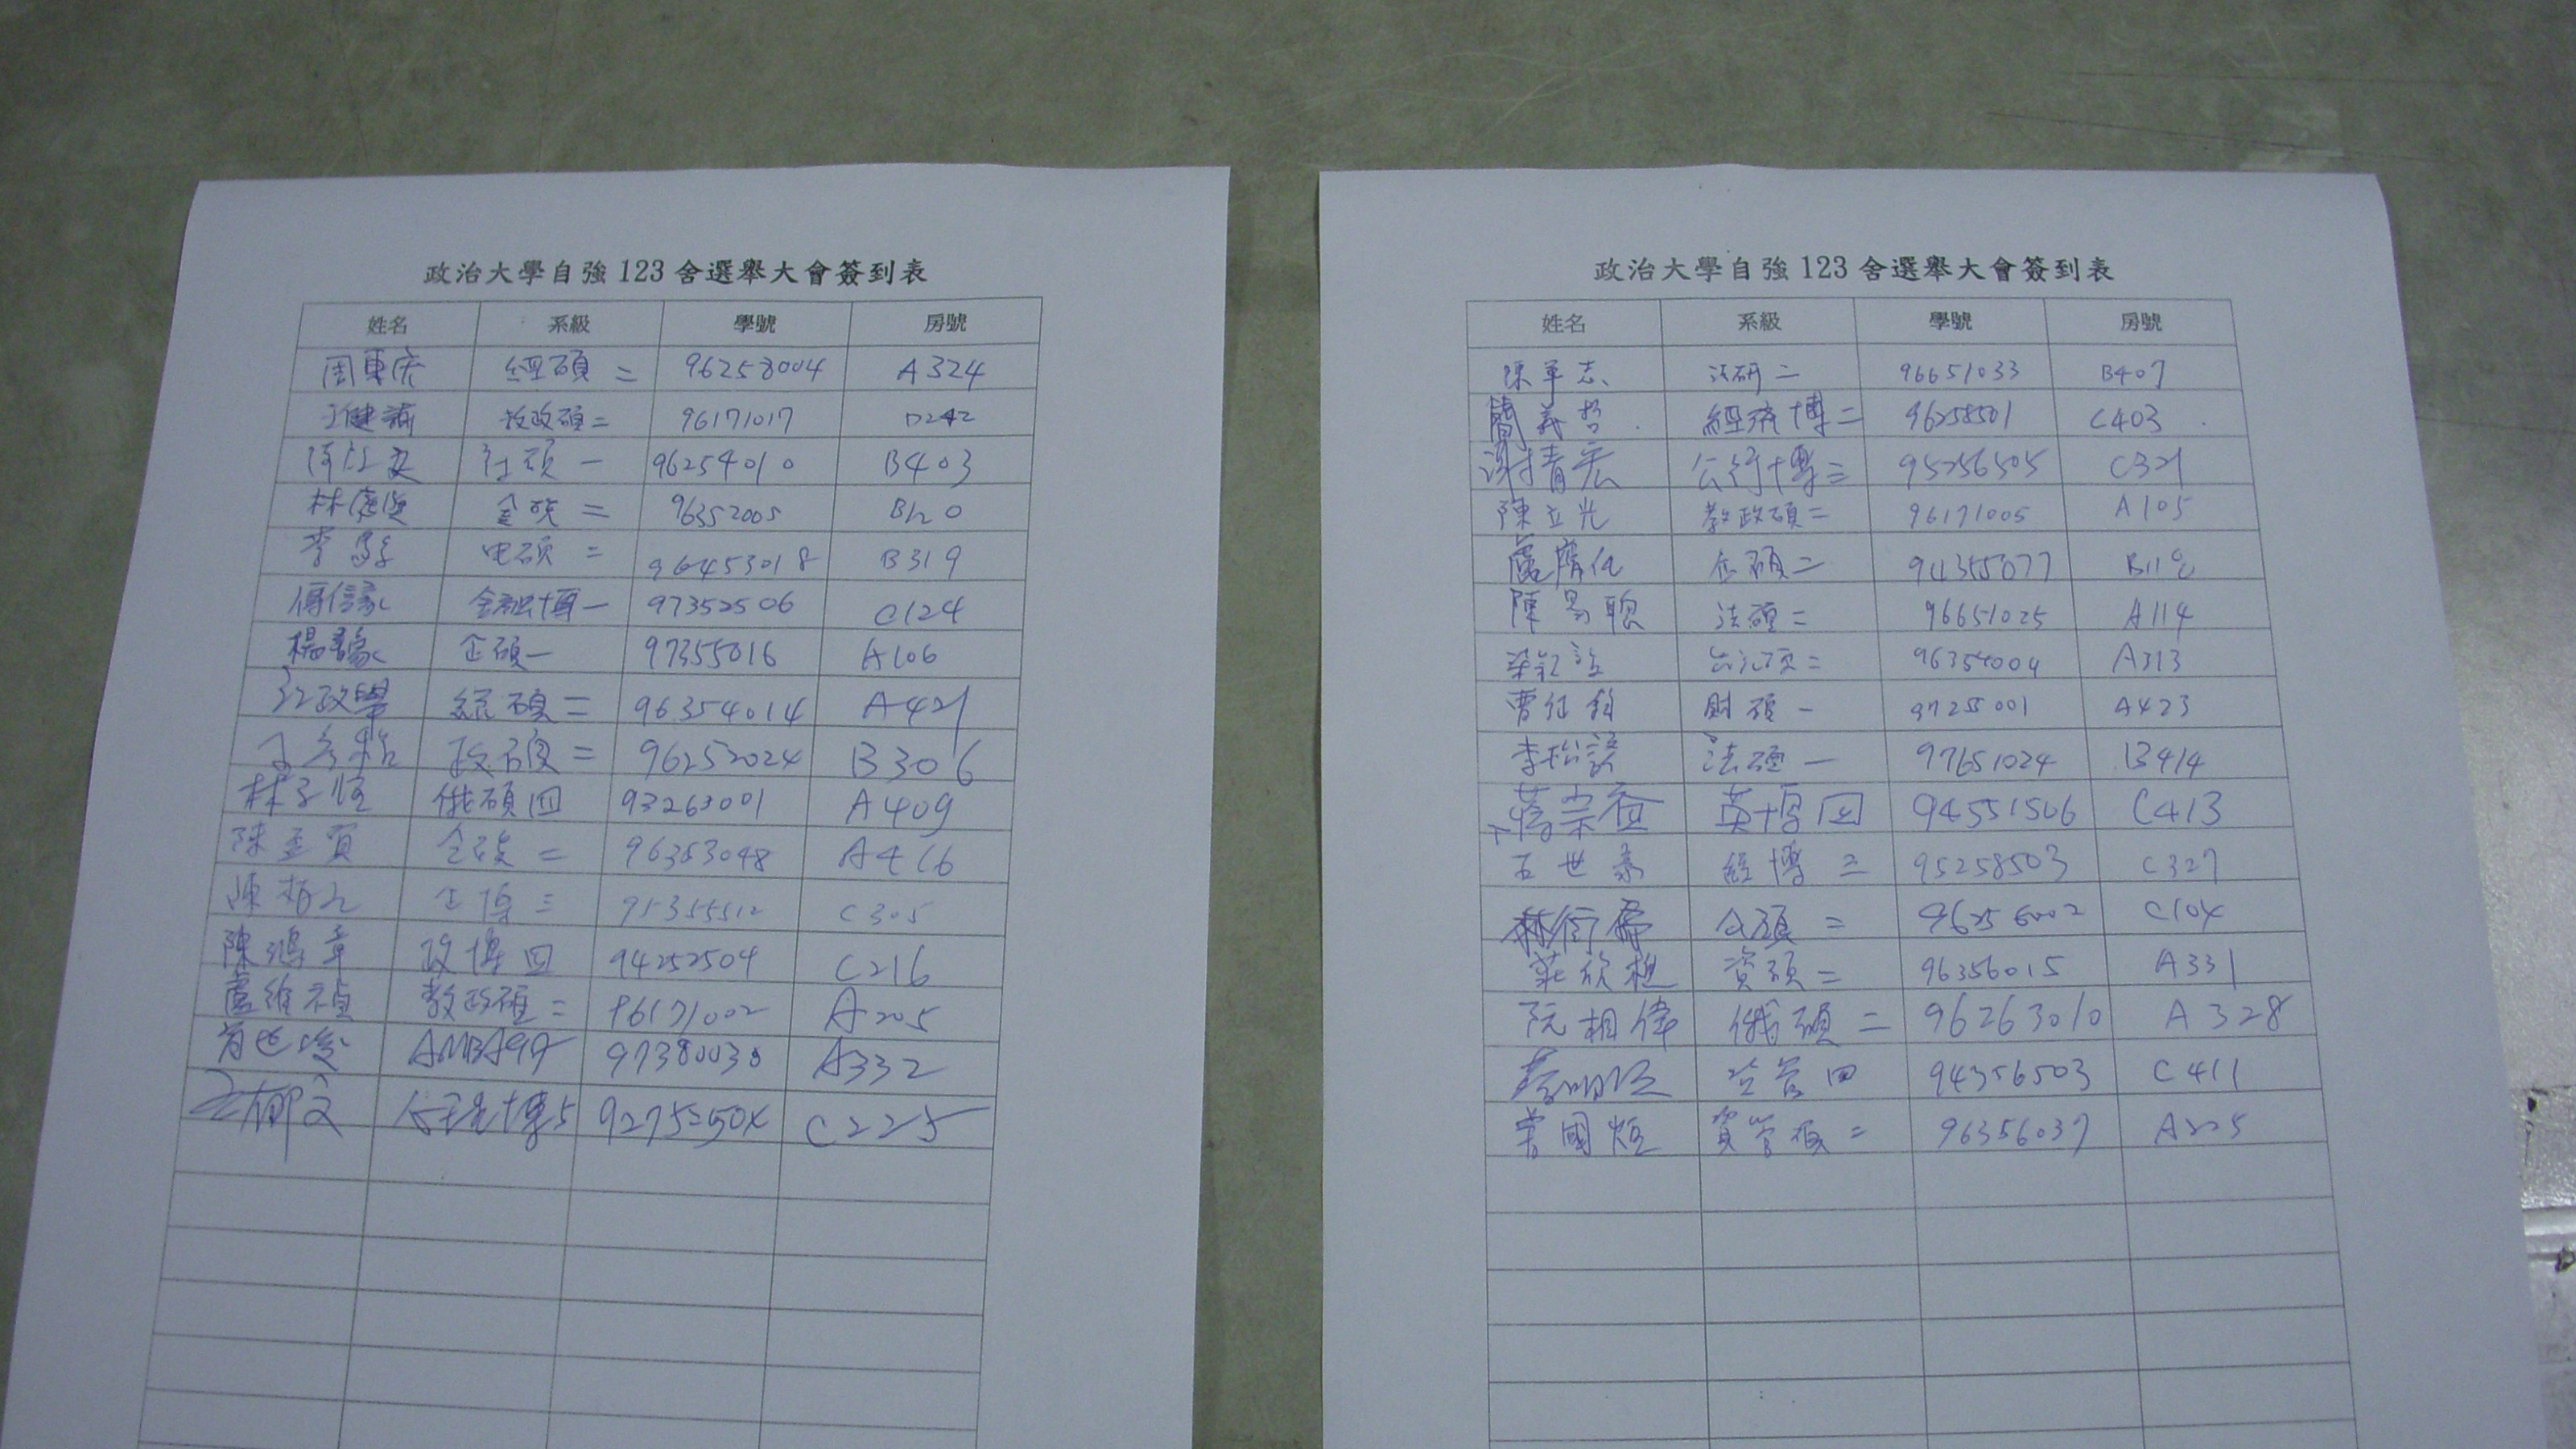 政治大學自強123舍選舉大會簽到表
姓名 系級 學號 房號
周東 經碩二 96258004 A324
教政碩二 96171017 D242
碩一 96254010 B403
林 金碩二 96352005 B120
李 碩二 B319
傅信豪 金融博一 97352506 C124
楊 豪 企碩一 97355016 A106
江政學 統碩二 96354014 A421
政碩二 96252024 B306
林子恆 俄碩四 93263001 A409
陳 二 96353048 A416
陳柏元 企博三 95355512 C305
陳鴻章 政博四 94252504 C216
盧維禎 教政碩二 96171002 A205
AMBA97 97380030 A332
王郁文 博5 C225
政治大學自強123舍選舉大會簽到表
姓名 系級 學號 房號
陳 志 法研二 96651033 B407
簡義哲 經濟博二 96258501 C403
謝 宏 公行博三 95256505 C321
陳立光 教政碩二 96171005 A105
盧 任 企碩二 94355077
陳易聰 法碩二 96651025 A114
梁 碩二 96354004 A313
曹 財碩一 97255001 A423
李松諺 法碩一 97651024 B414
蔣宗 英博四 94551506 C413
古世豪 經博三 95258503 C327
林衍儒 公碩二 96256002 C104
莊欣 資碩二 96356015 A331
阮相偉 俄碩二 96263010 A328
蔡明 資管四 94356503 C411
曾國烜 資管碩二 96356037 A225